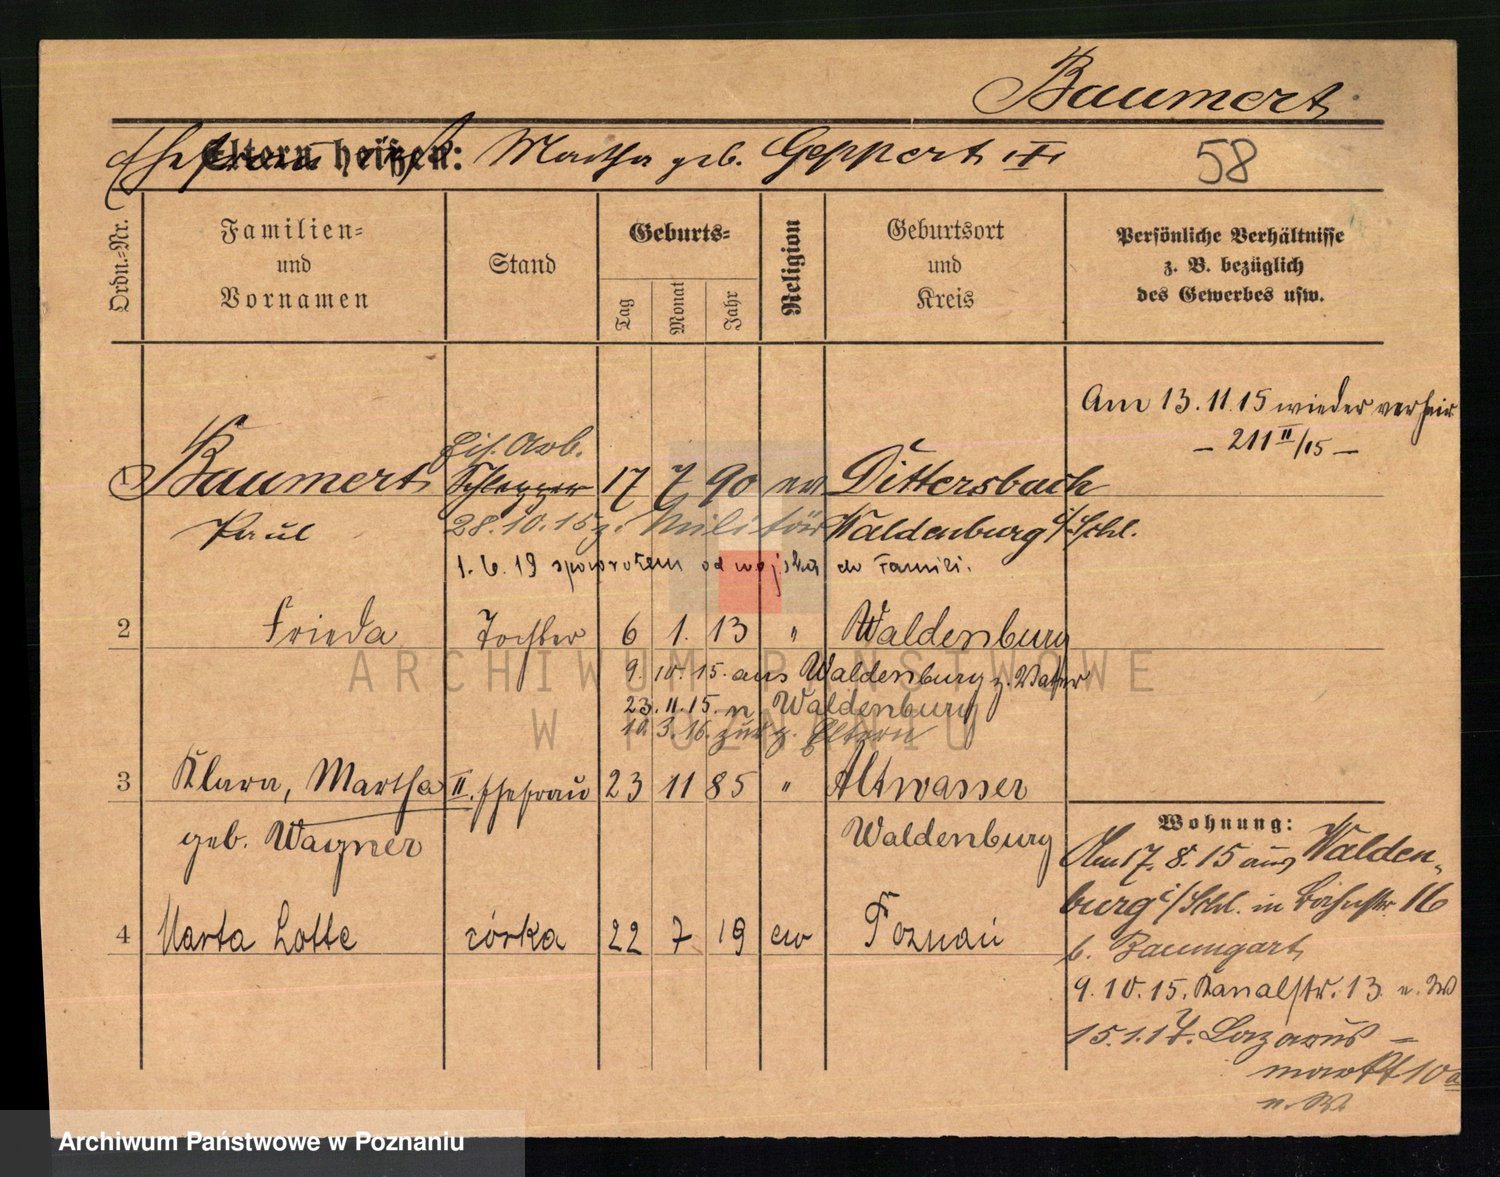 Baumert
Eltern heißen: Martha geb. Geppert
58
Ordn.=Nr.
Familien=
und
Vornamen
Stand
Geburts=
Tag
Monat
Jahr
Religion
Geburtsort
und
Kreis
Persönliche Verhältnisse
z. B. bezüglich
des Gewerbes usw.
Am 13.11.15 wieder verheir.
- 211 II/15 -
1 Baumert 17 7 90 ev Dittersbach
Paul 28.10.15 z. Militär Waldenburg i/Schl.
1.6.19 spowrotem od wojska do Famili.
2 Frieda Tochter 6 1. 13 " Waldenburg
9.10.15. aus Waldenburg z. Vater
23.11.15. n Waldenburg
10.3.16. zur. z. Eltern
3 Klara, Martha II. Ehefrau 23 11 85 " Altwasser
geb. Wagner Waldenburg
Wohnung:
Am 17.8.15 aus Walden-
burg i/Schl. in 16
b. Baumgart
4 Marta Lotte córka 22 7 19 ew Poznań
9.10.15. Kanalstr. 13 n. W
15.1.17. Lazarus-
markt 10a
n. W
ARCHIWUM PAŃSTWOWE
W POZNANIU
Archiwum Państwowe w Poznaniu